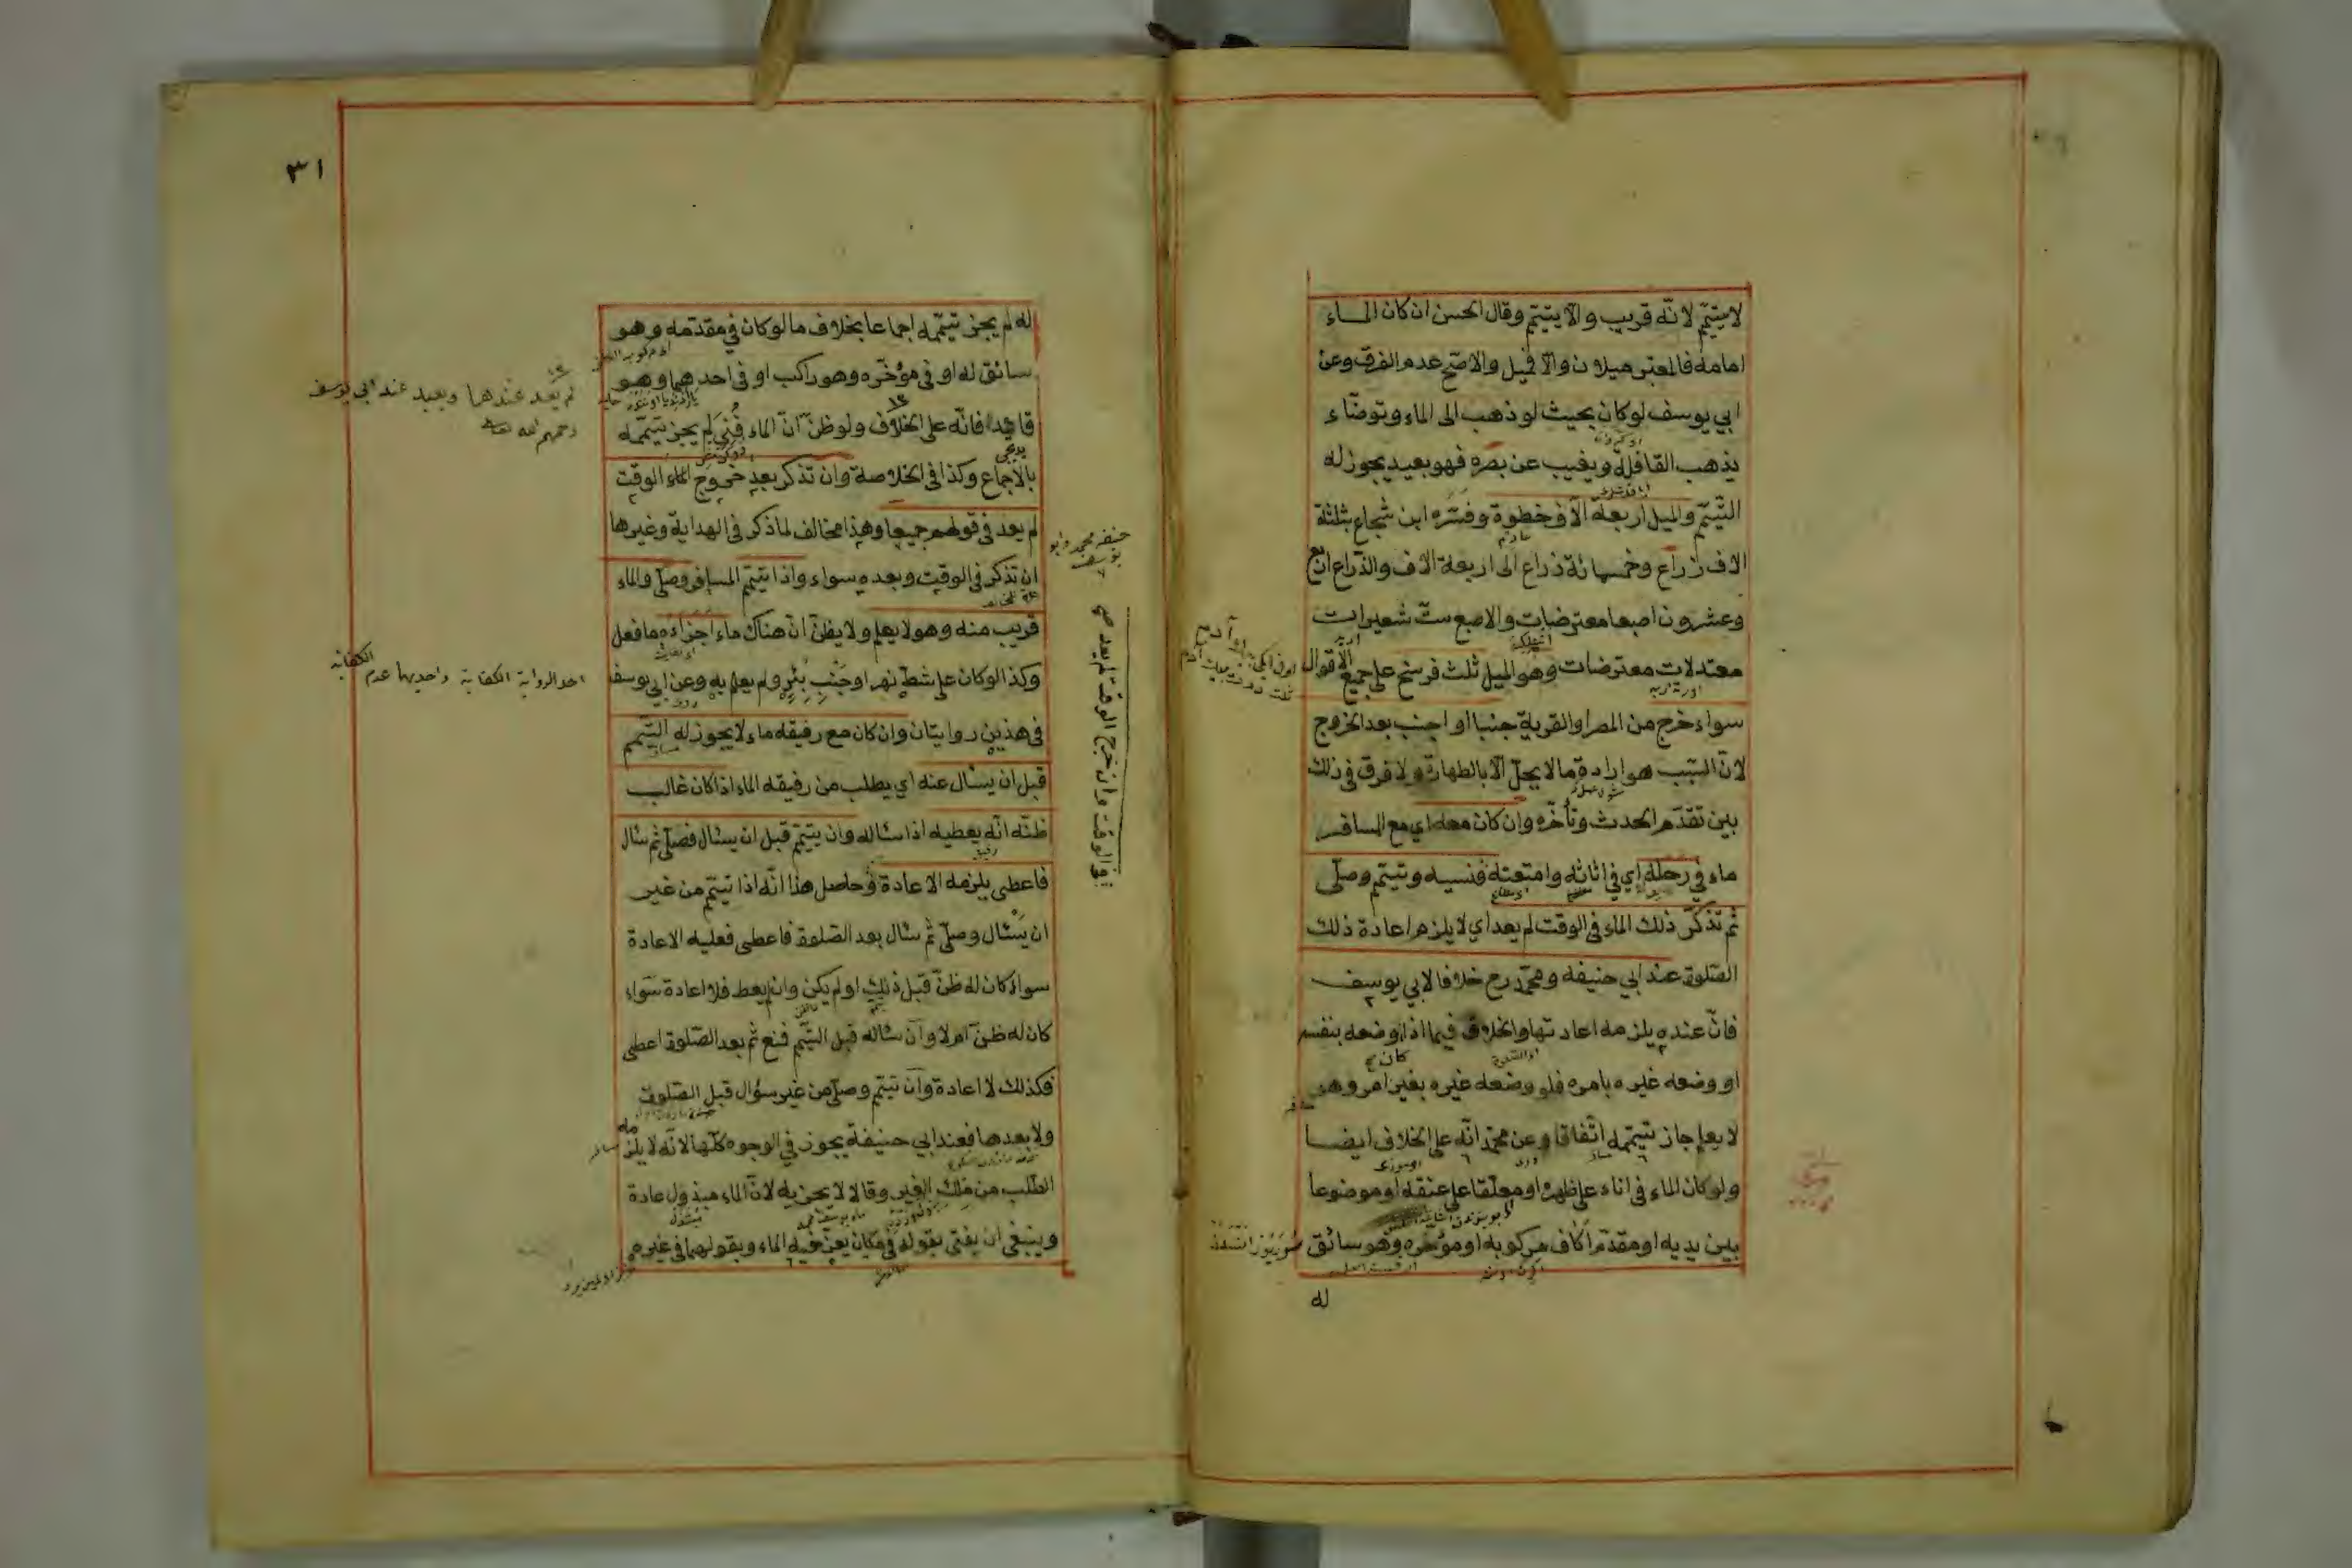 لا يتيمّم لانّه قريب والّا يتيمّم وقال الحسن ان كان المـاء
امامه فالمعتبر ميلان والّا فميل والاصحّ عدم الفرق وعن
ابي يوسف لو كان بحيث لو ذهب الى الماء وتوضّاء
يذهب القافلة ويغيب عن بصره فهو بعيد يجوز له
التّيمّم والميل اربعة الآف خطوة وفسّره ابن شجاع بثلثة
الاف ذراع وخمسمائة ذراع الى اربعة الاف والذّراع اربع
وعشرون اصبعا معترضات والاصبع ستّ شعيرات
معتدلات معترضات وهو الميل ثلث فرسخ على جميع الأقوال
سواء خرج من المصر او القرية جنبا او اجنب بعد الخروج
لانّ السّبب هو ارادة ما لا يحلّ الّا بالطهارة ولا فرق في ذلك
بين تقدّم الحدث وتأخّره وان كان معه اي مع المسافر
ماء في رحله اي في اثاثه وامتعته فنسيه وتيمّم وصلّى
ثم تذكّر ذلك الماء في الوقت لم يعد اي لا يلزم اعادة ذلك
الصّلوة عند ابي حنيفه ومحمّد رح خلافا لابي يوسف
فانّ عنده يلزمه اعادتها والخلاف فيما اذا وضعه بنفسه
او وضعه غيره بامره فلو وضعه غيره بغير امره وهو
لا يعلم جاز تيمّمه اتّفاقا وعن محمّد انّه على الخلاف ايضـا
ولو كان الماء في اناء على ظهره او معلّقا على عنقه او موضوعا
بين يديه او مقدّم اكاف مركوبه او مؤخره وهو سائق
له
٣١
له لم يجز تيمّمه اجماعا بخلاف ما لو كان في مقدّمه وهو
سائق له او في مؤخّره وهو راكب او في احدهما وهو
قائد فانّه على الخلاف ولو ظنّ انّ الماء فُني لم يجز تيمّمه
بالاجماع وكذا في الخلاصة وان تذكر بعد خروج الوقت
لم يعد في قولهم جميعا وهذا مخالف لما ذكر في الهداية وغيرها
ان تذكر في الوقت وبعده سواء واذا تيمّم المسافر وصلّى والماء
قريب منه وهو لا يعلم ولا يظنّ انّ هناك ماء اجزاءه ما فعل
وكذا لو كان على شطّ نهر او جنب بئر ولم يعلم به وعن ابي يوسف
في هذين روايتان وان كان مع رفيقه ماء لا يجوز له التّيمّم
قبل ان يسئال عنه اي يطلب من رفيقه الماء اذا كان غالب
ظنّه انّه يعطيه اذا سئاله وان تيمّم قبل ان يسئال فصلّى ثم سئال
فاعطى يلزمه الاعادة وحاصل هذا انّه اذا تيمّم من غير
ان يسئال وصلّى ثم سئال بعد الصّلوة فاعطى فعليه الاعادة
سواء كان له ظنّ قبل ذلك او لم يكن وان لم يعط فلا اعادة سواء
كان له ظنّ ام لا وان سئاله قبل التّيمّم فمنع ثم بعد الصّلوة اعطى
فكذلك لا اعادة وان تيمّم وصلّى من غير سؤال قبل الصّلوة
ولا بعدها فعند ابي حنيفة يجوز في الوجوه كلّها لانّه لا يلزمه
الطّلب من ملك الغير وقالا لا يجزيه لانّ الماء مبذول عادة
وينبغي ان يفتى بقوله في مكان يعزّ فيه الماء وبقولهما في غيره
لم يعد عندهما ويعيد عند ابي يوسف
رحمهم الله تعالى
احد الرواية الكفاية واحديها عدم الكفاية
حنيفه محمد وابو يوسف